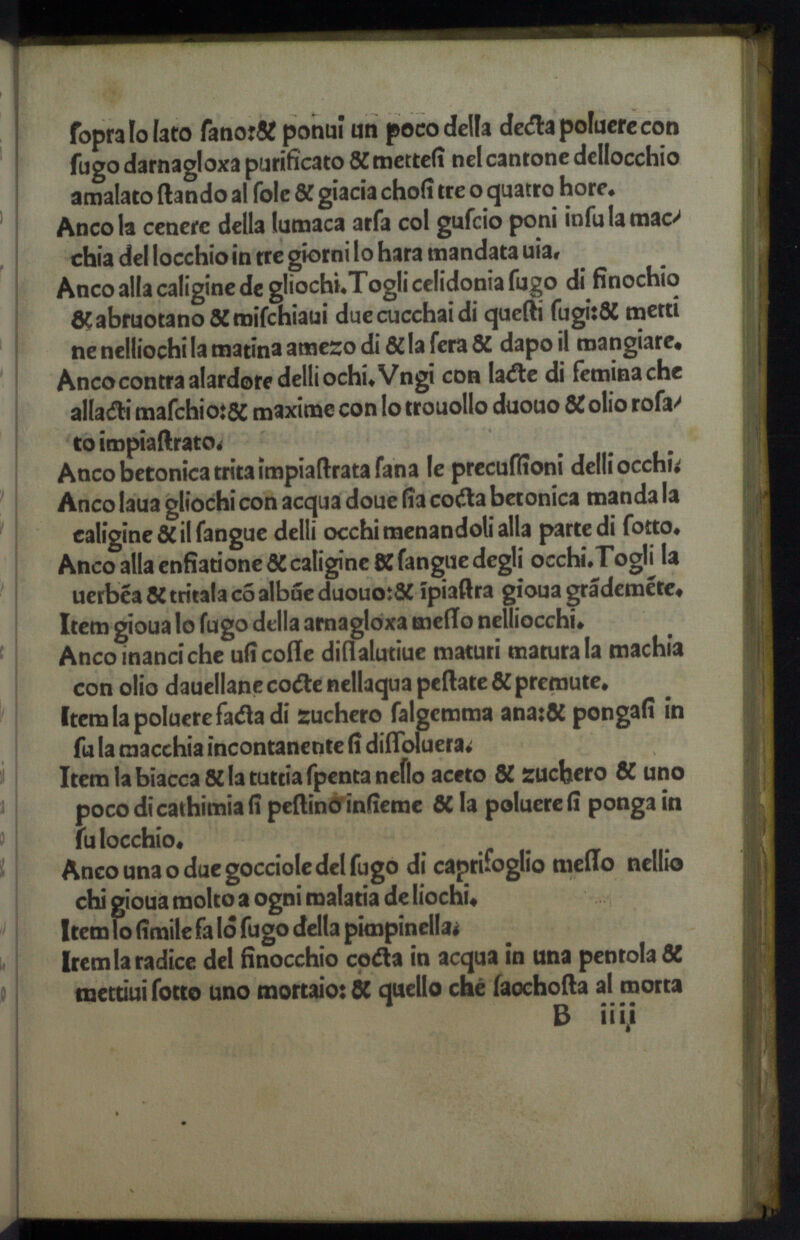 ſopra lo lato ſano:& ponui un poco della decta poluere con
ſugo darnagloxa purificato & metteſi nel cantone dellocchio
amalato ſtando al ſole & giacia choſi tre o quatro hore.
Anco la cenere della lumaca arſa col guſcio poni inſu la mac/
chia del locchio in tre giorni lo hara mandata uia.
Anco alla caligine de gliochi.Togli celidonia ſugo di finochio
& abruotano & miſchiaui due cucchai di queſti ſugi:& metti
ne nelliochi la matina amezo di & la ſera & dapo il mangiare.
Anco contra alardore delli ochi.Vngi con lacte di femina che
allacti maſchio:& maxime con lo trouollo duouo & olio roſa/
to impiaſtrato.
Anco betonica trita impiaſtrata ſana le precuſſioni delli occhi.
Anco laua gliochi con acqua doue ſia cocta betonica manda la
caligine & il ſangue delli occhi menandoli alla parte di ſotto.
Anco alla enfiatione & caligine & ſangue degli occhi.Togli la
uerbéa & tritala cō albūe duouo:& īpiaſtra gioua grādemēte.
Item gioua lo ſugo della arnagloxa meſſo nelliocchi.
Anco inanci che uſi coſſe diſſalutiue maturi matura la machia
con olio dauellane cocte nellaqua peſtate & premute.
Item la poluere facta di zuchero ſalgemma ana:& pongaſi in
ſu la macchia incontanente ſi diſſoluera.
Item la biacca & la tuttia ſpenta nello aceto & zuchero & uno
poco di cathimia ſi peſtino inſieme & la poluere ſi ponga in
ſu locchio.
Anco una o due gocciole del ſugo di caprifoglio meſſo nellio
chi gioua molto a ogni malatia de liochi.
Item lo ſimile fa lo ſugo della pimpinella.
Irem la radice del finocchio cocta in acqua in una pentola &
mettiui ſotto uno mortaio: & quello che ſacchoſta al morta
B iiii